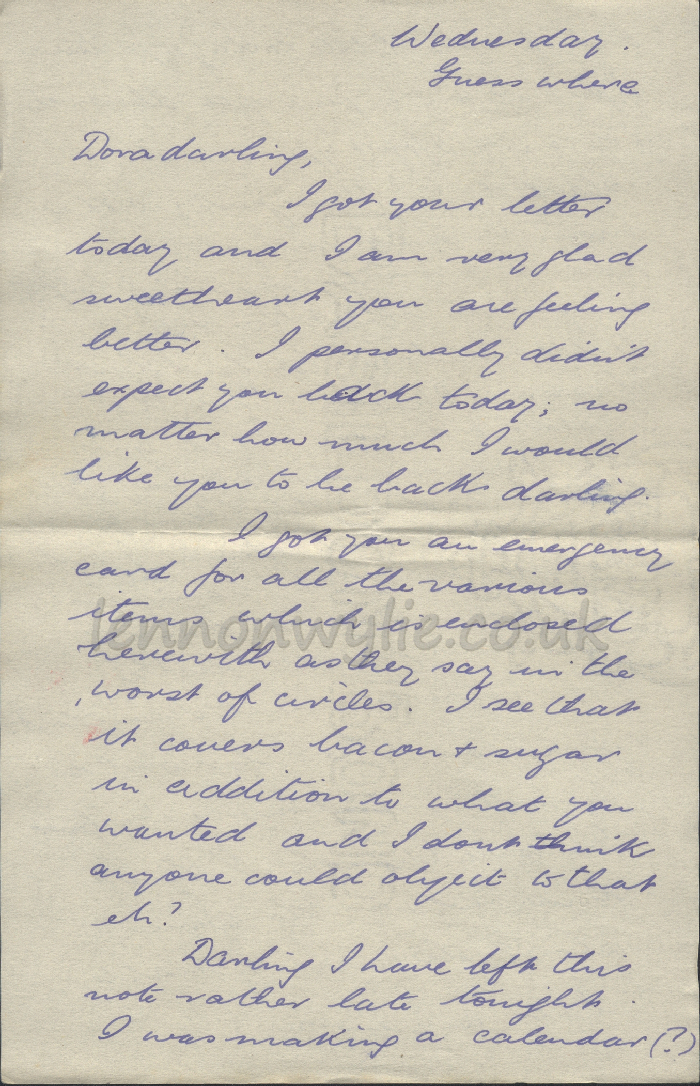 Wednesday.
Guess where
Dora darling,
I got your letter
today and I am very glad
sweetheart you are feeling
better. I personally didn't
expect you back today; no
matter how much I would
like you to be back darling.
I got you an emergency
card for all the various
items which is enclosed
lennonwylie.co.uk
herewith as they say in the
worst of circles. I see that
it covers bacon + sugar
in addition to what you
wanted and I dont think
anyone could object to that
eh?
Darling I have left this
note rather late tonight.
I was making a calendar (?)